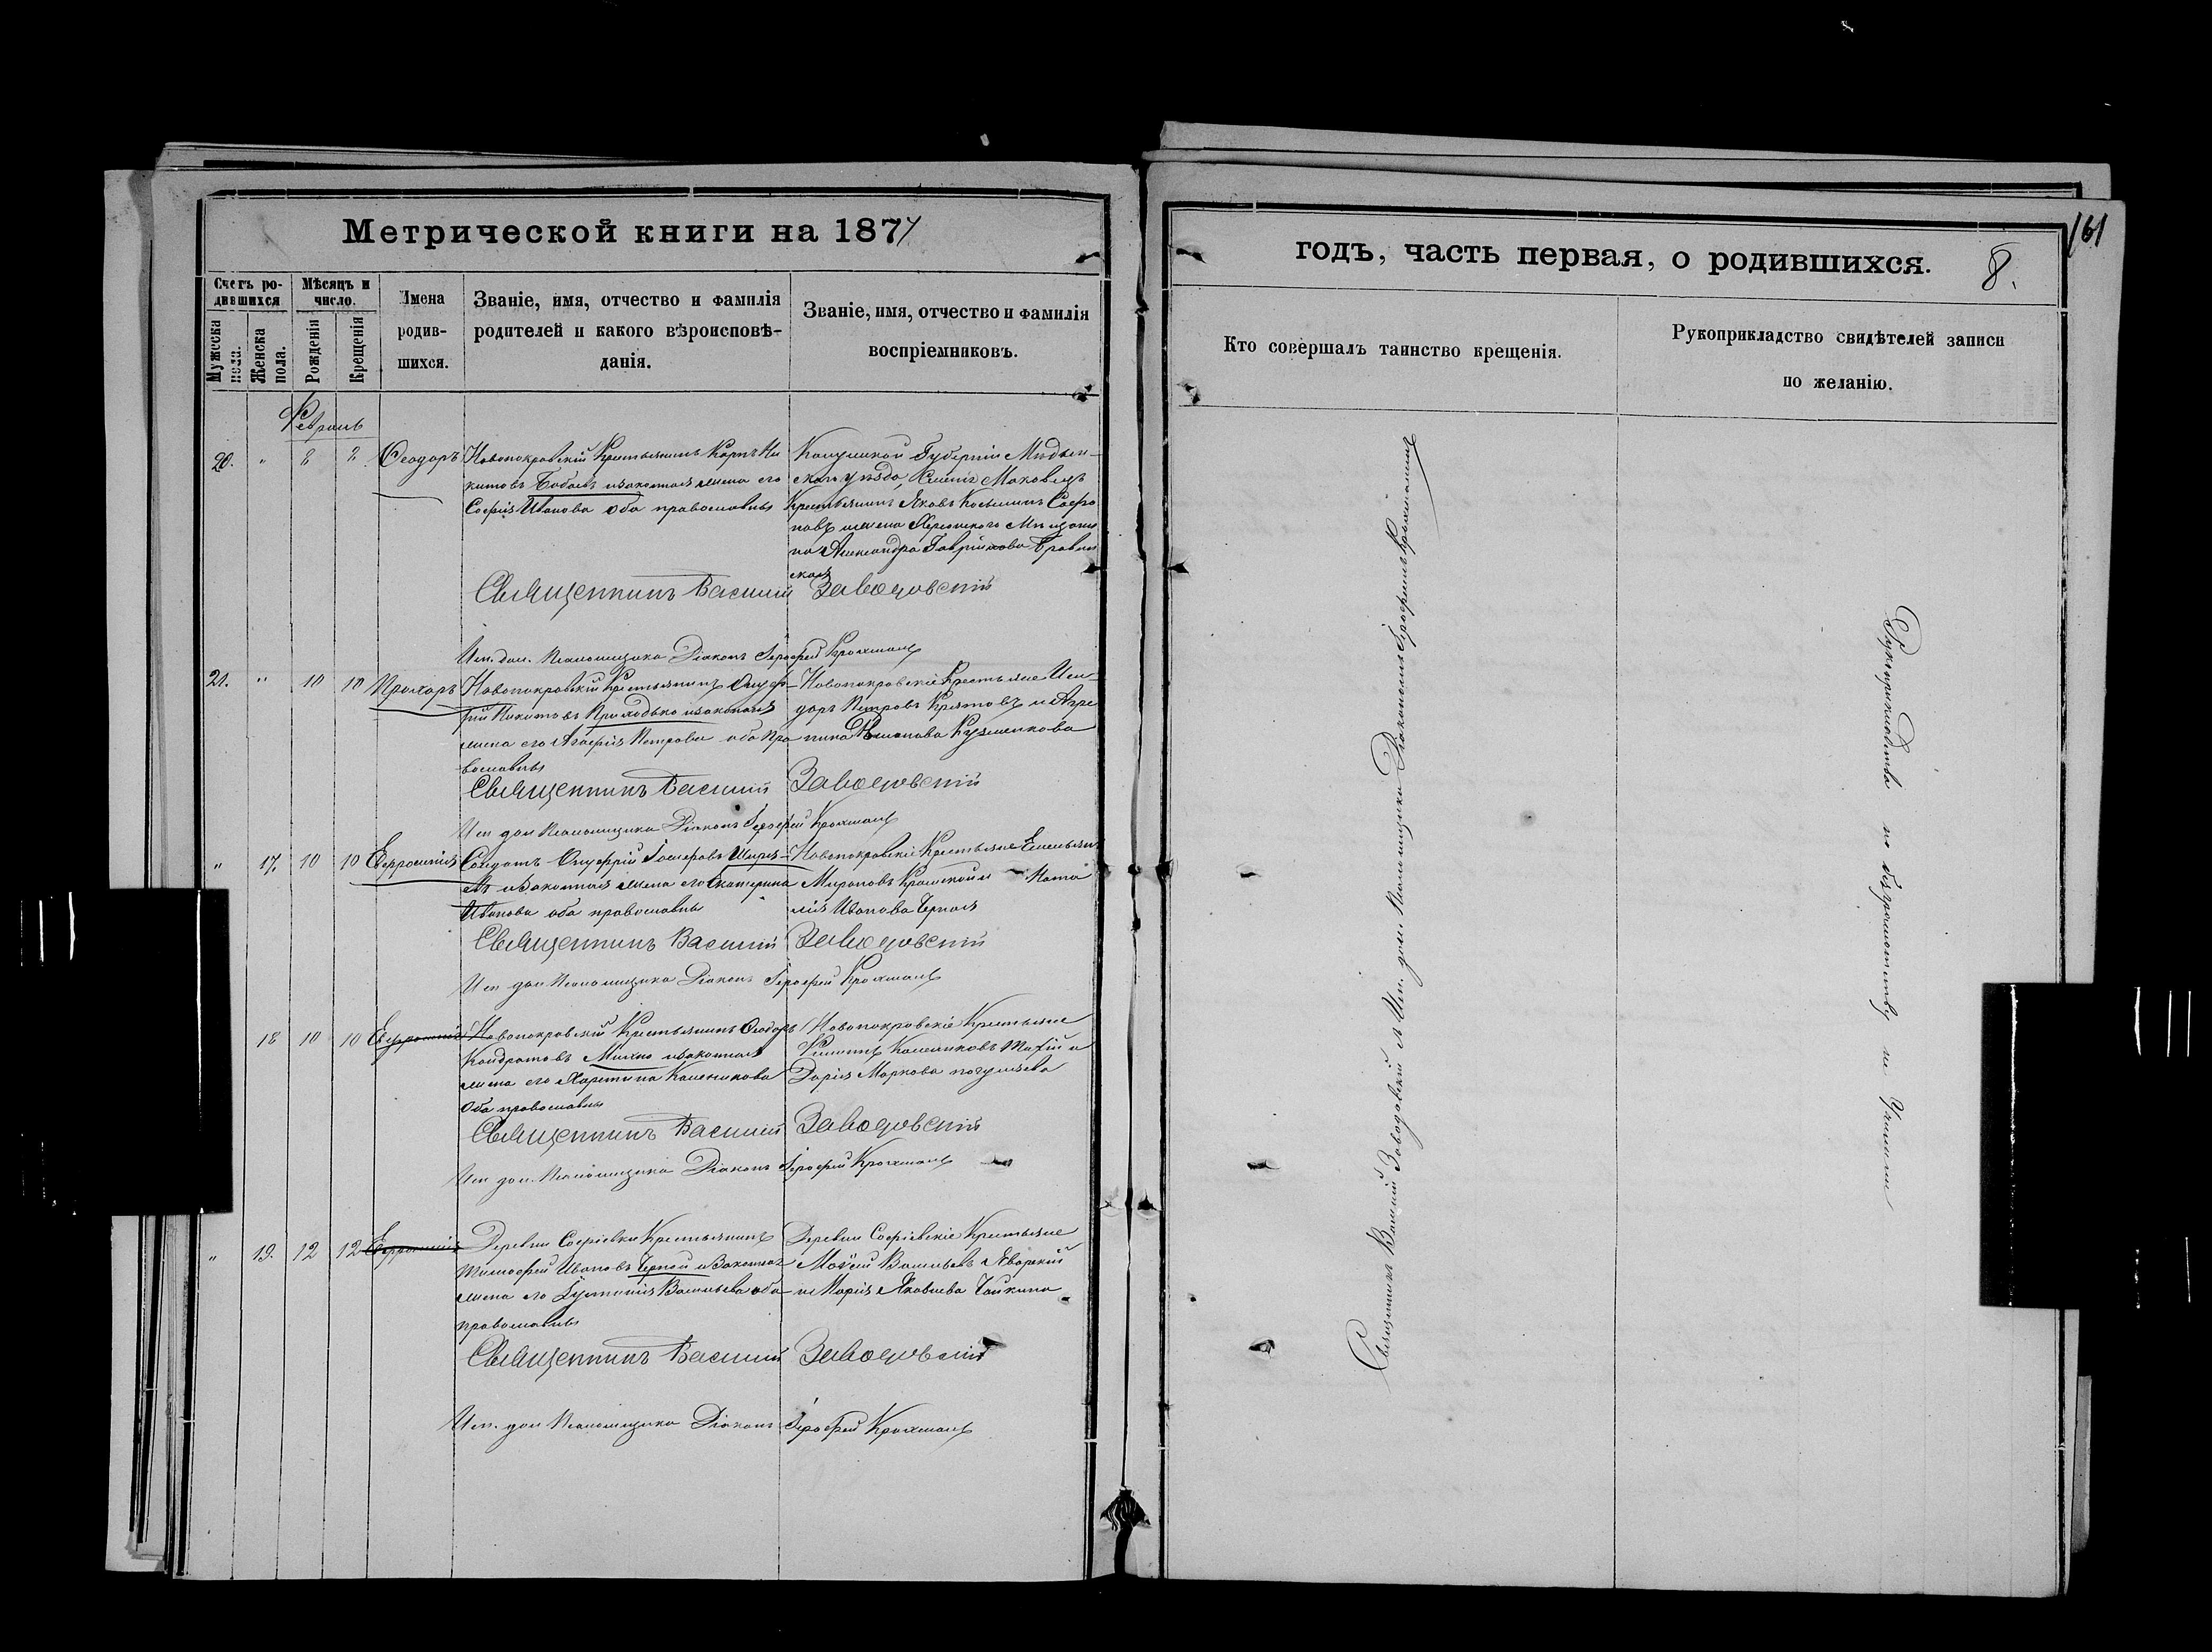 Метрической книги на 1874
Счетъ ро-
дившихся
Мѣсяцъ и
число.
Мужеска
пола.
Женска
пола.
Рожденія
Крещенія
Имена
родив-
шихся.
Званіе, имя, отчество и фамилія
родителей и какого вѣроисповѣ-
данія.
Званіе, имя, отчество и фамилія
воспріемниковъ.
Февраль
20. " 8 8 Ѳеодоръ
Новопокровскій Крестьянинъ Карпъ Ни
китовъ Бабаевъ и законная жена его
Софія Иванова оба православны
Калужской Губерніи Мядын-
скаго уѣзда, Маковецъ
Крестьянинъ Яковъ Софро
новъ и жена Херсонскаго Мѣщани
на Александра Гаврилова
ская
Священникъ Василій Заводовскій
Исп. дол. Псаломщика Діаконъ Іерофей Крохмаль
21. " 10 10 Прохоръ
Новопокровскій Крестьянинъ Онуф-
рій Никитовъ Приходько и законная
жена его Агафія Петрова оба пра
вославны
Новопокровскіе Крестьяне Иси-
доръ Петровъ и Агри
пина Кузменкова
Священникъ Василій Заводовскій
Исп дол Псаломщика Діаконъ Іерофей Крохмаль
" 17. 10 10 Евфросинія
Солдатъ Онуфрій Іосифовъ
и законная жена его Екатерина
Иванова оба православны
Новопокровскіе Крестьяне Емельян
Мироновъ и Ната
лія Иванова Черная
Священникъ Василій Заводовскій
Исп дол Псаломщика Діаконъ Іерофей Крохмаль
18 10 10 Евфросинія
Новопокровскій Крестьянинъ Ѳеодоръ
Кондратовъ Михно и законная
жена его Харитина Каленикова
Оба православны
Новопокровскіе Крестьяне
Филиппъ Калениковъ и
Дарія Маркова
Священникъ Василій Заводовскій
Исп дол. Псаломщика Діаконъ Іерофей Крохмаль
" 19. 12 12 Евфросинія
Деревни Софіевки Крестьянинъ
Тимофей Ивановъ Черной и Законная
жена его Васильева оба
православны
Деревни Софіевскіе Крестьяне
Моѵсей Васильевъ Яворскій
и Марія Яковлева Чайкина
Священникъ Василій Заводовскій
Исп. дол Псаломщика Діаконъ Іерофей Крохмаль
161
годъ, часть первая, о родившихся. 8.
Кто совершалъ таинство крещенія.
Рукоприкладство свидѣтелей записи
по желанію.
Священникъ Василій Заводовскій и Исп. дол. Псаломщика Діакономъ Іерофеемъ Крохмалемъ
Рукоприкладства по безграмотству не Учинили